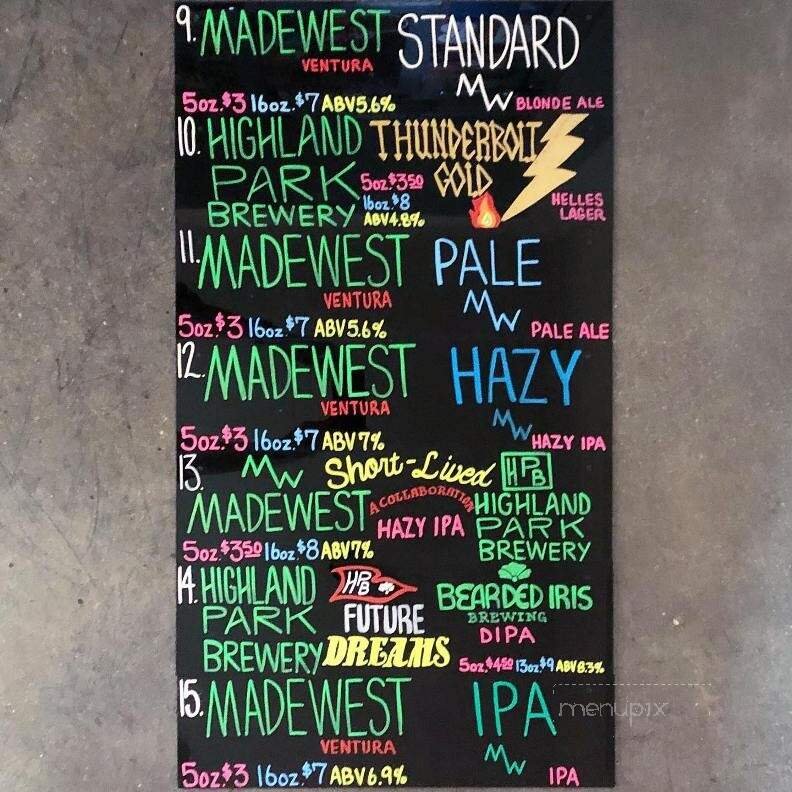 9. MADEWEST STANDARD
VENTURA
MW
5oz.$3 16oz.$7 ABV5.6% BLONDE ALE
10. HIGHLAND THUNDERBOLT
PARK 5oz.$3.50 GOLD
16oz.$8 HELLES
BREWERY ABV4.8% LAGER
11. MADEWEST PALE
VENTURA MW
5oz.$3 16oz.$7 ABV5.6% PALE ALE
12. MADEWEST HAZY
VENTURA MW
5oz.$3 16oz.$7 ABV7% HAZY IPA
13. MW Short-Lived HPB
MADEWEST A COLLABORATION HIGHLAND
HAZY IPA PARK
5oz.$3.50 16oz.$8 ABV7% BREWERY
14. HIGHLAND HPB BEARDED IRIS
PARK FUTURE BREWING
DIPA
BREWERY DREAMS 5oz.$4.50 13oz.$9 ABV8.3%
15. MADEWEST IPA
menupix
VENTURA MW
5oz.$3 16oz.$7 ABV6.9% IPA